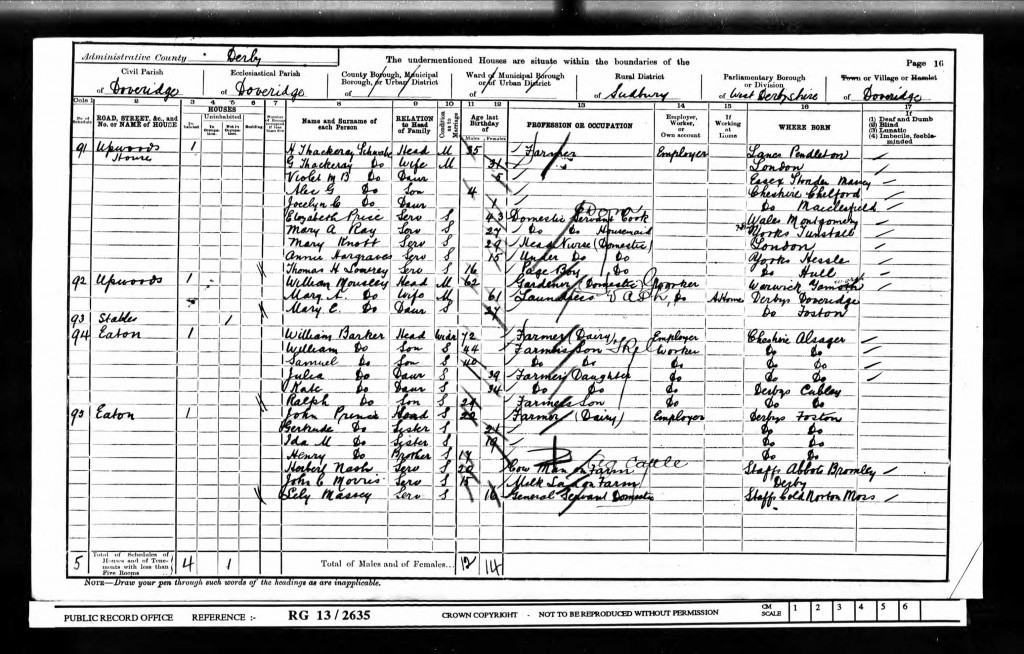 Administrative County Derby
The undermentioned Houses are situate within the boundaries of the
Page 16
Civil Parish of Doveridge
Ecclesiastical Parish of Doveridge
County Borough, Municipal Borough, or Urban District of
Ward of Municipal Borough or of Urban District of
Rural District of Sudbury
Parliamentary Borough or Division of West Derbyshire
Town or Village or Hamlet of Doveridge
Cols. 1 2 3 4 5 6 7 8 9 10 11 12 13 14 15 16 17
No. of Schedule
ROAD, STREET, &c., and No. or NAME of HOUSE
HOUSES
Inhabited
Uninhabited
In Occupation
Not in Occupation
Building
Name and Surname of each Person
RELATION to Head of Family
Condition as to Marriage
Age last Birthday of
Males Females
PROFESSION OR OCCUPATION
Employer, Worker, or Own account
If Working at Home
WHERE BORN
If (1) Deaf and Dumb (2) Blind (3) Lunatic (4) Imbecile, feeble-minded
91 Upwoods House 1 H Thackeray Schwabe Head M 35 Farmer Employer Lancs Pendleton
G Thackeray Do Wife M 31 London
Violet M B Do Daur 5 Essex Stondon Massey
Alec G Do Son 4 Cheshire Chelford
Jocelyn C Do Daur 1 Do Macclesfield
Elizabeth Price Serv S 43 Domestic Servant Cook Wales Montgomery
Mary A Ray Serv S 27 Do Do Housemaid Yorks Tunstall
Mary Knott Serv S 29 Head Nurse (Domestic) London
Annie Hargraves Serv S 15 Under Do Do Yorks Hessle
Thomas H Lowrey Serv S 16 Page Boy Do Do Hull
92 Upwoods 1 William Mousley Head M 62 Gardener (Domestic) Worker Warwick
Mary A. Do Wife M 61 Laundress Do At Home Derbys Doveridge
Mary E. Do Daur S 27 Do Foston
93 Stables 1
94 Eaton 1 William Barker Head Widr 72 Farmer (Dairy) Employer Cheshire Alsager
William Do Son S 44 Farmers Son Worker Do Do
Samuel Do Son S 40 Do Do Do Do Do
Julia Do Daur S 39 Farmer Daughter Do Do Do
Kate Do Daur S 34 Do Do Do Derbys Cubley
Ralph Do Son S 24 Farmers Son Do Do Do
95 Eaton 1 John Prince Head S 22 Farmer (Dairy) Employer Derbys Foston
Gertrude Do Sister S 21 Do Do
Ida M Do Sister S 19 Do Do
Henry Do Brother S 17 Do Do
Herbert Nash Serv S 20 Cow Man on Farm Cattle Staffs Abbots Bromley
John C Morris Serv S 15 Milk Lad on Farm Derby
Lily Massey Serv S 16 General Servant Domestic Staffs Cold Norton Moss
5 Total of Schedules of Houses and of Tenements with less than Five Rooms 4 1 Total of Males and of Females... 12 14
NOTE—Draw your pen through such words of the headings as are inapplicable.
PUBLIC RECORD OFFICE REFERENCE :- RG 13/2635 CROWN COPYRIGHT - NOT TO BE REPRODUCED WITHOUT PERMISSION CM SCALE 1 2 3 4 5 6